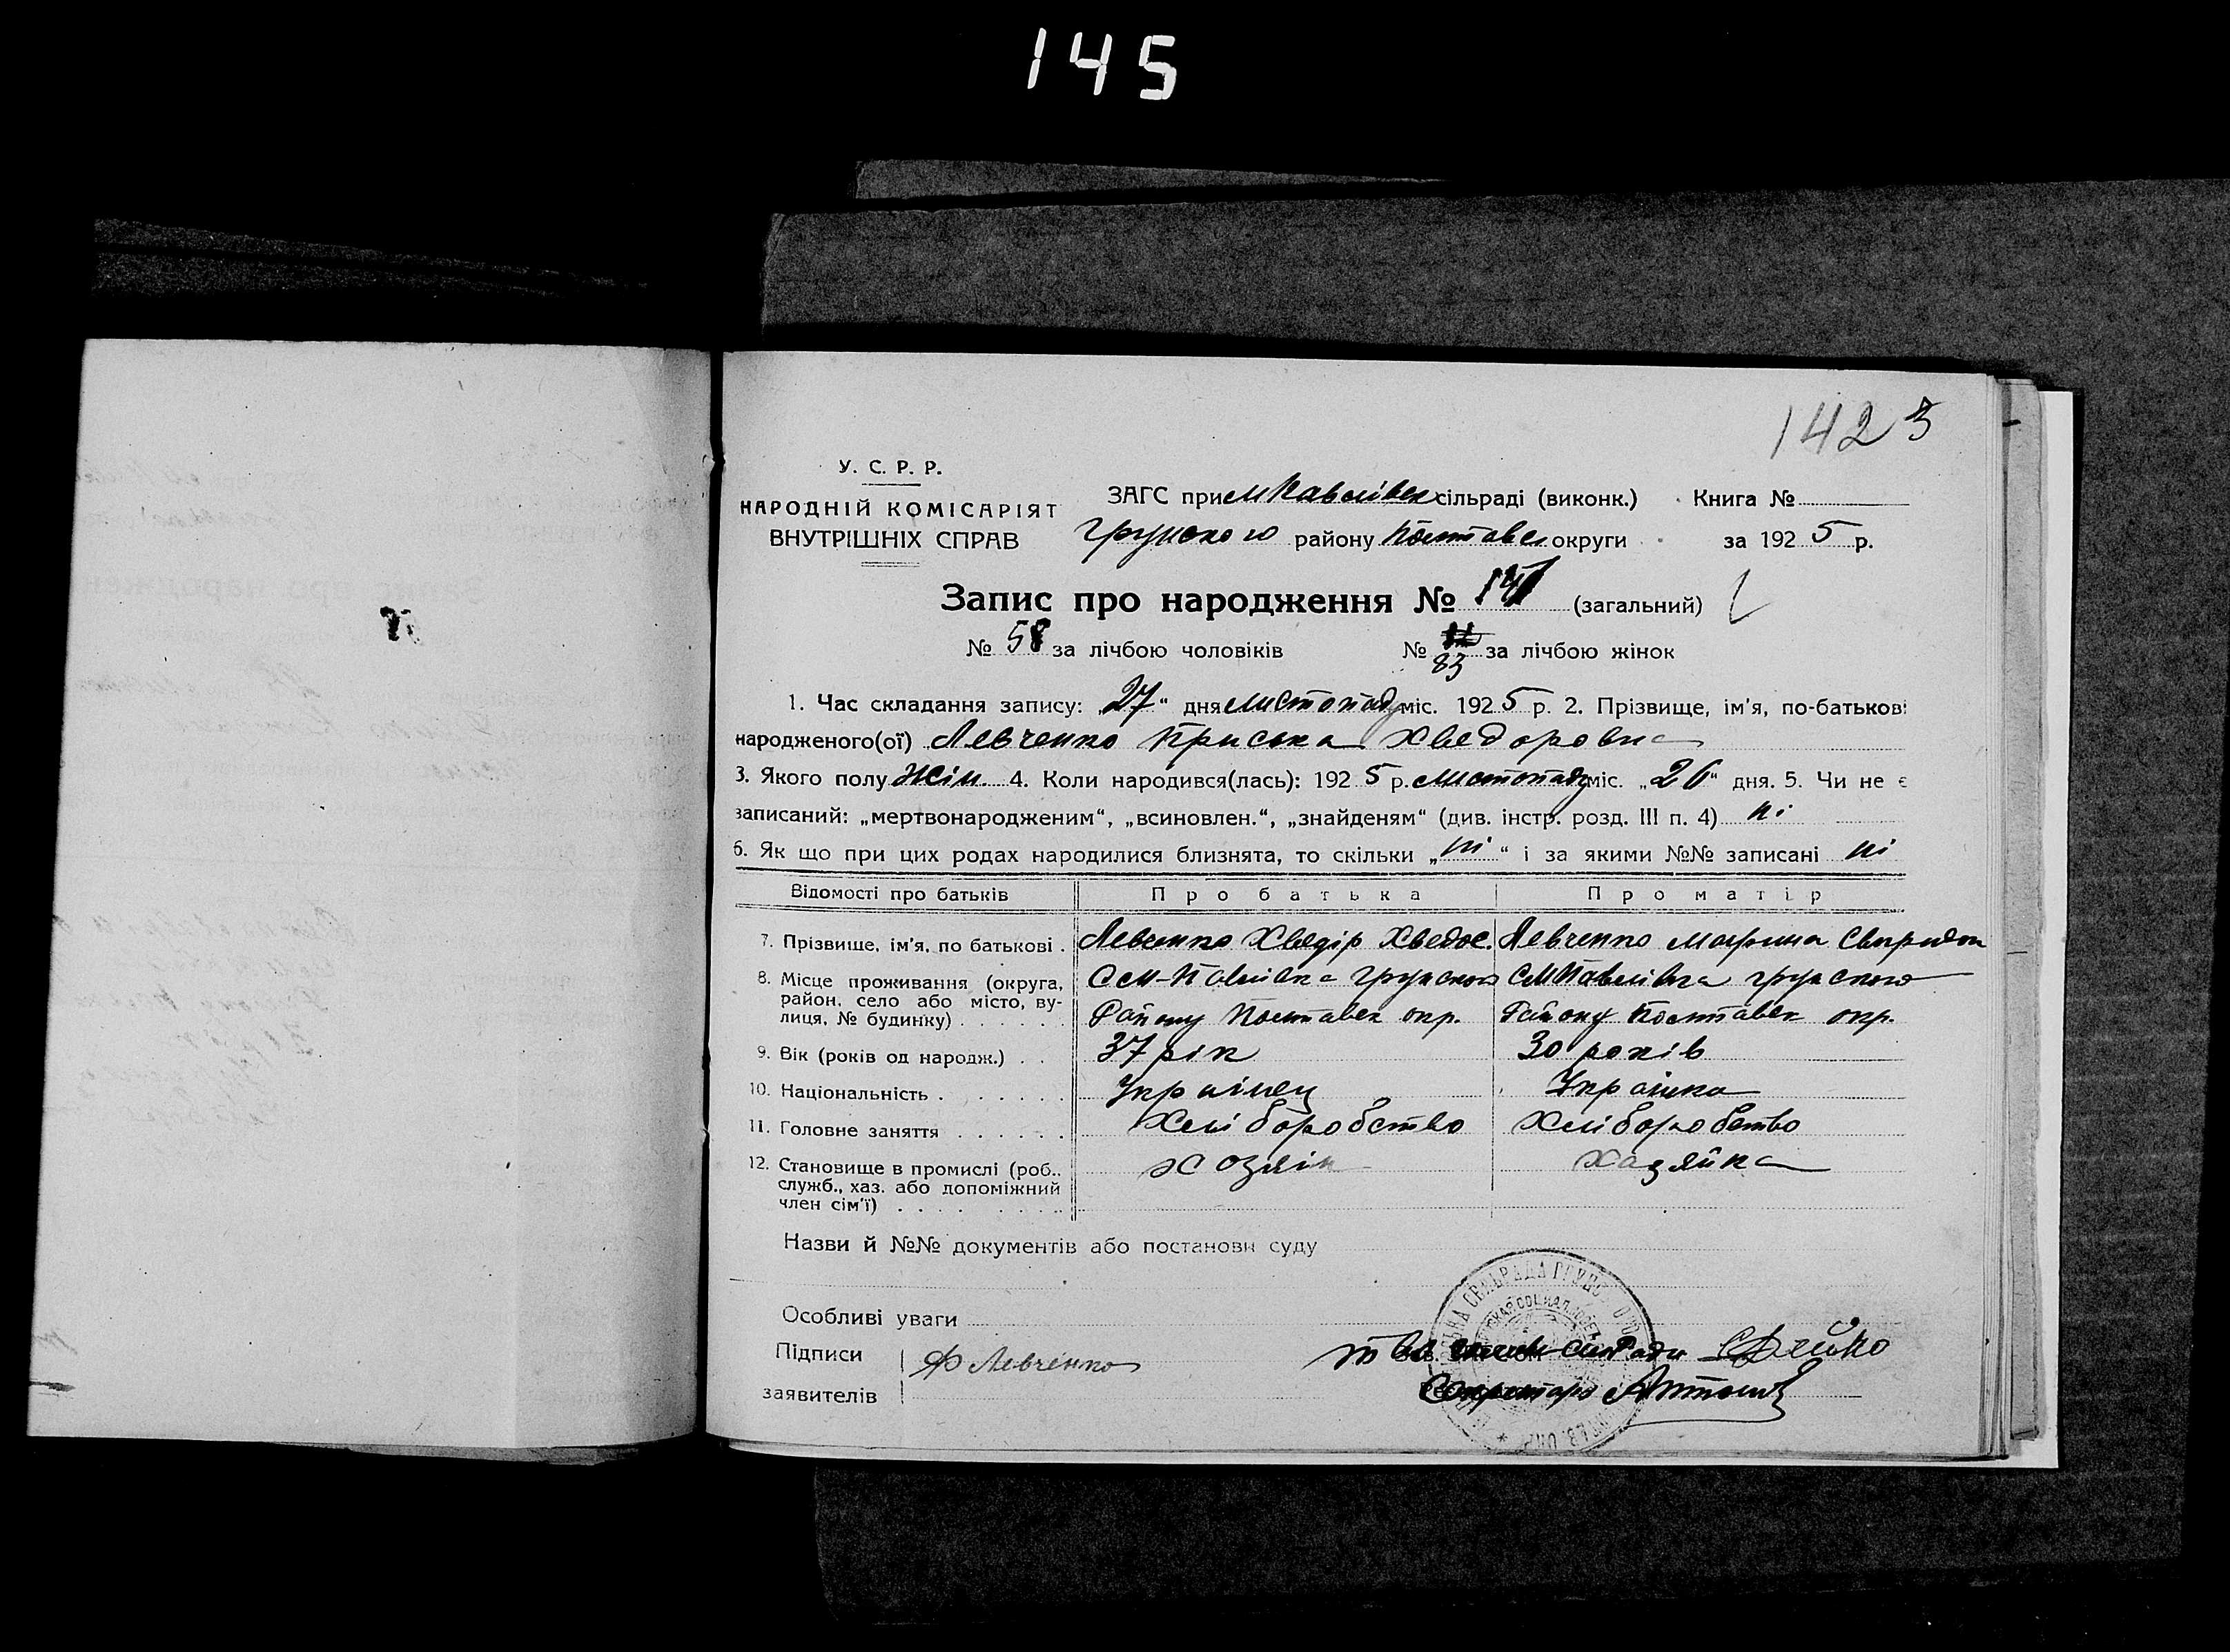 145
1423
У. С. Р. Р.
НАРОДНІЙ КОМІСАРІЯТ
ВНУТРІШНІХ СПРАВ
ЗАГС при М Павлівск сільраді (виконк.) Книга №
Грунського району Полтавс. округи за 1925 р.
Запис про народження № 141 (загальний)
№ 58 за лічбою чоловіків № 83 за лічбою жінок
1. Час складання запису: „27“ дня листопаду міс. 1925 р. 2. Прізвище, ім'я, по-батькові
народженого(ої) Левченко Приська Хведоровна
3. Якого полу жін. 4. Коли народився(лась): 1925 р. листопаду міс. „26“ дня. 5. Чи не є
записаний: „мертвонародженим“, „всиновлен.“, „знайденям“ (див. інстр. розд. III п. 4) ні
6. Як що при цих родах народилися близнята, то скільки „ні“ і за якими №№ записані ні
Відомості про батьків Про батька Про матір
7. Прізвище, ім'я, по батькові . Левченко Хведір Хведос. Левченко Марина Свиридон
8. Місце проживання (округа, район, село або місто, вулиця, № будинку) . . . . . .
С М-Павлівка Грунського
Району Полтавск окр.
С М Павлівка Грунського
Району Полтавск окр.
9. Вік (років од народж.) . . 37 рік 30 років
10. Національність . . . . . . . Українец Українка
11. Головне заняття . . . . . . Хліборобство Хліборобство
12. Становище в промислі (роб., служб., хаз. або допоміжний член сім'ї) . . . . . . . . Хозяін Хазяйка
Назви й №№ документів або постанови суду
Особливі уваги
Підписи
заявителів
Ф Левченко
сільРади
Секретарь